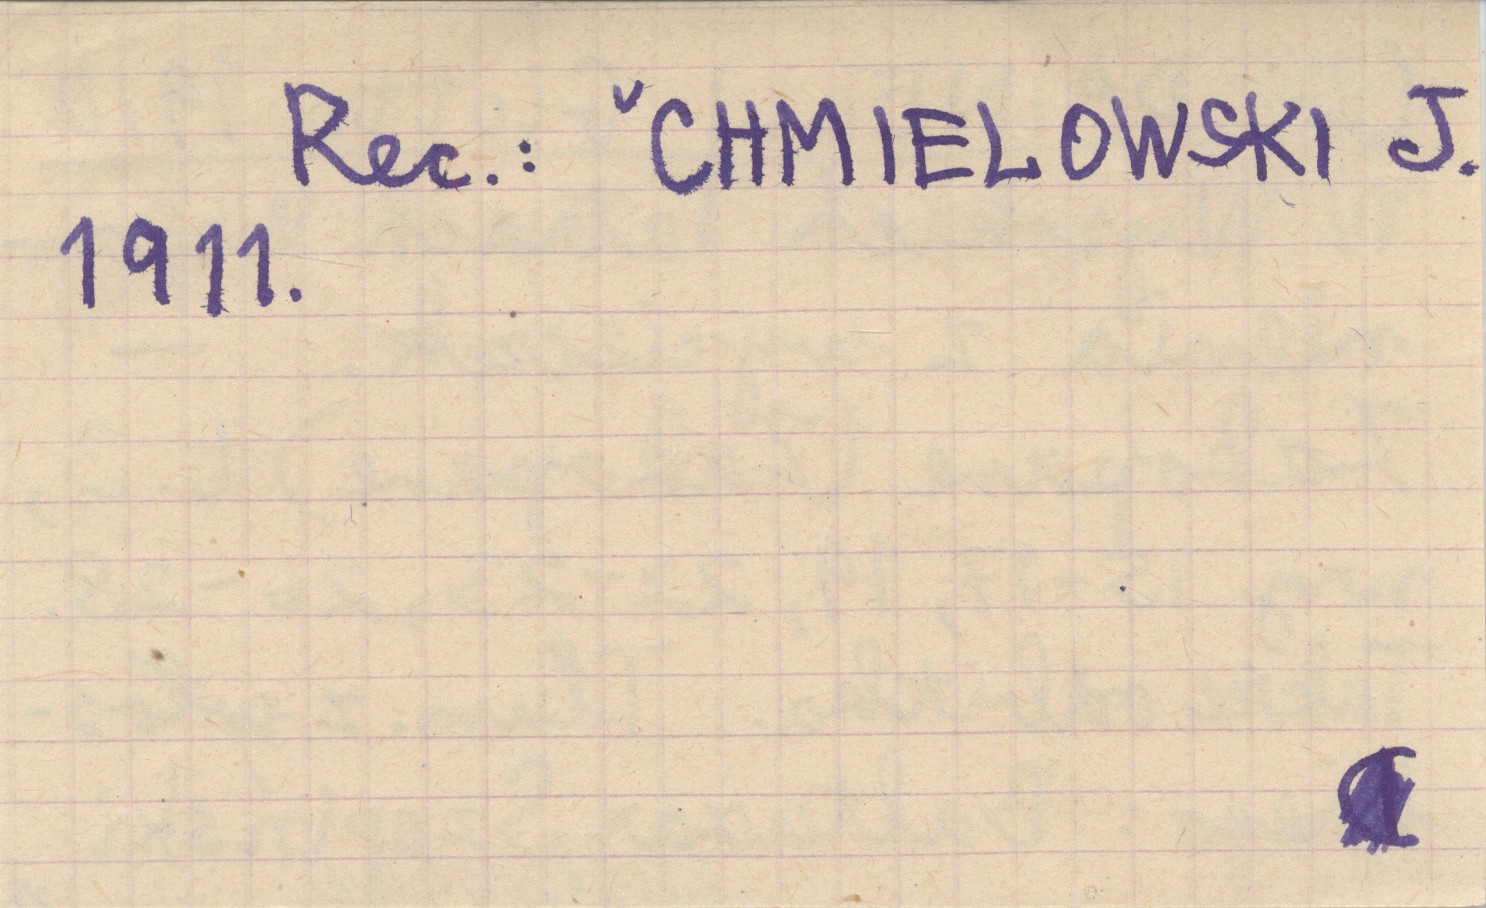 Rec.: ˇCHMIELOWSKI J.
1911.